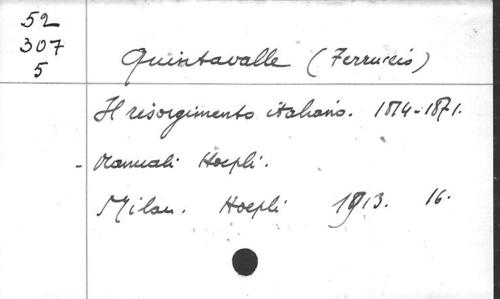 52
307
5
Quintavalle (Ferruccio)
Il risorgimento italiano. 1814-1871.
- Manuali Hoepli.
Milan. Hoepli 1913. 16.